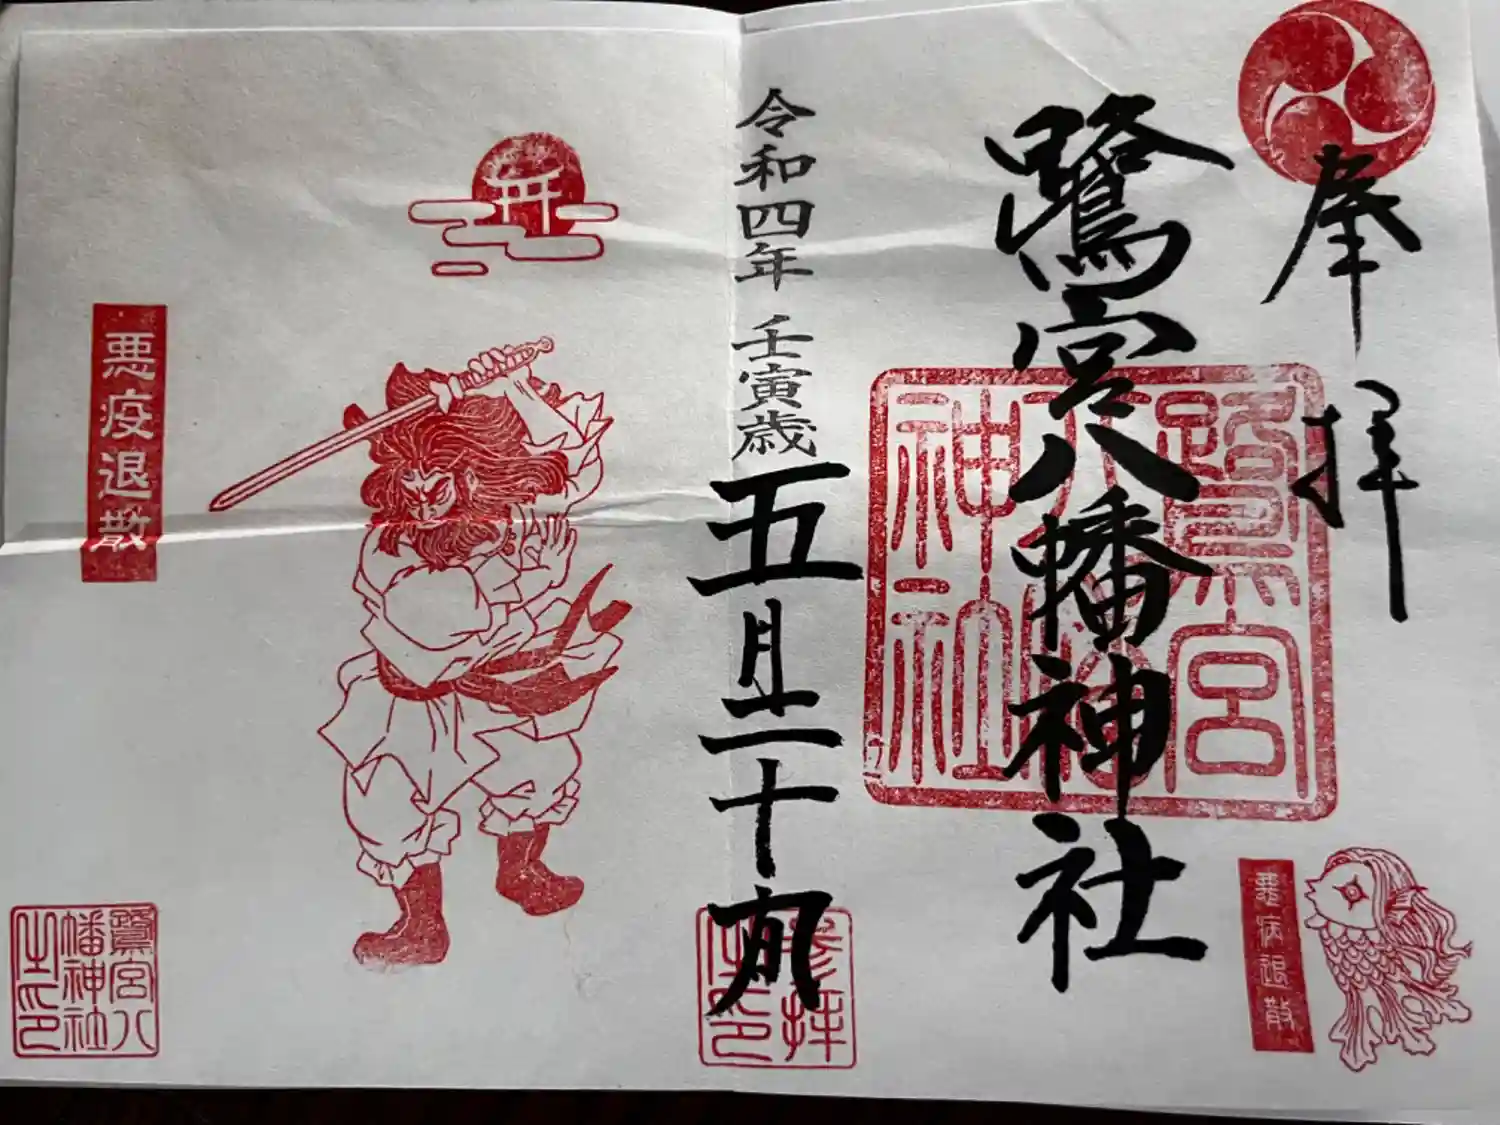 奉拝
鷺宮八幡神社
鷺宮
八幡
神社
悪病退散
令和四年 壬寅歳 五月二十九日
參拝
之印
悪疫退散
鷺宮八
幡神社
之印